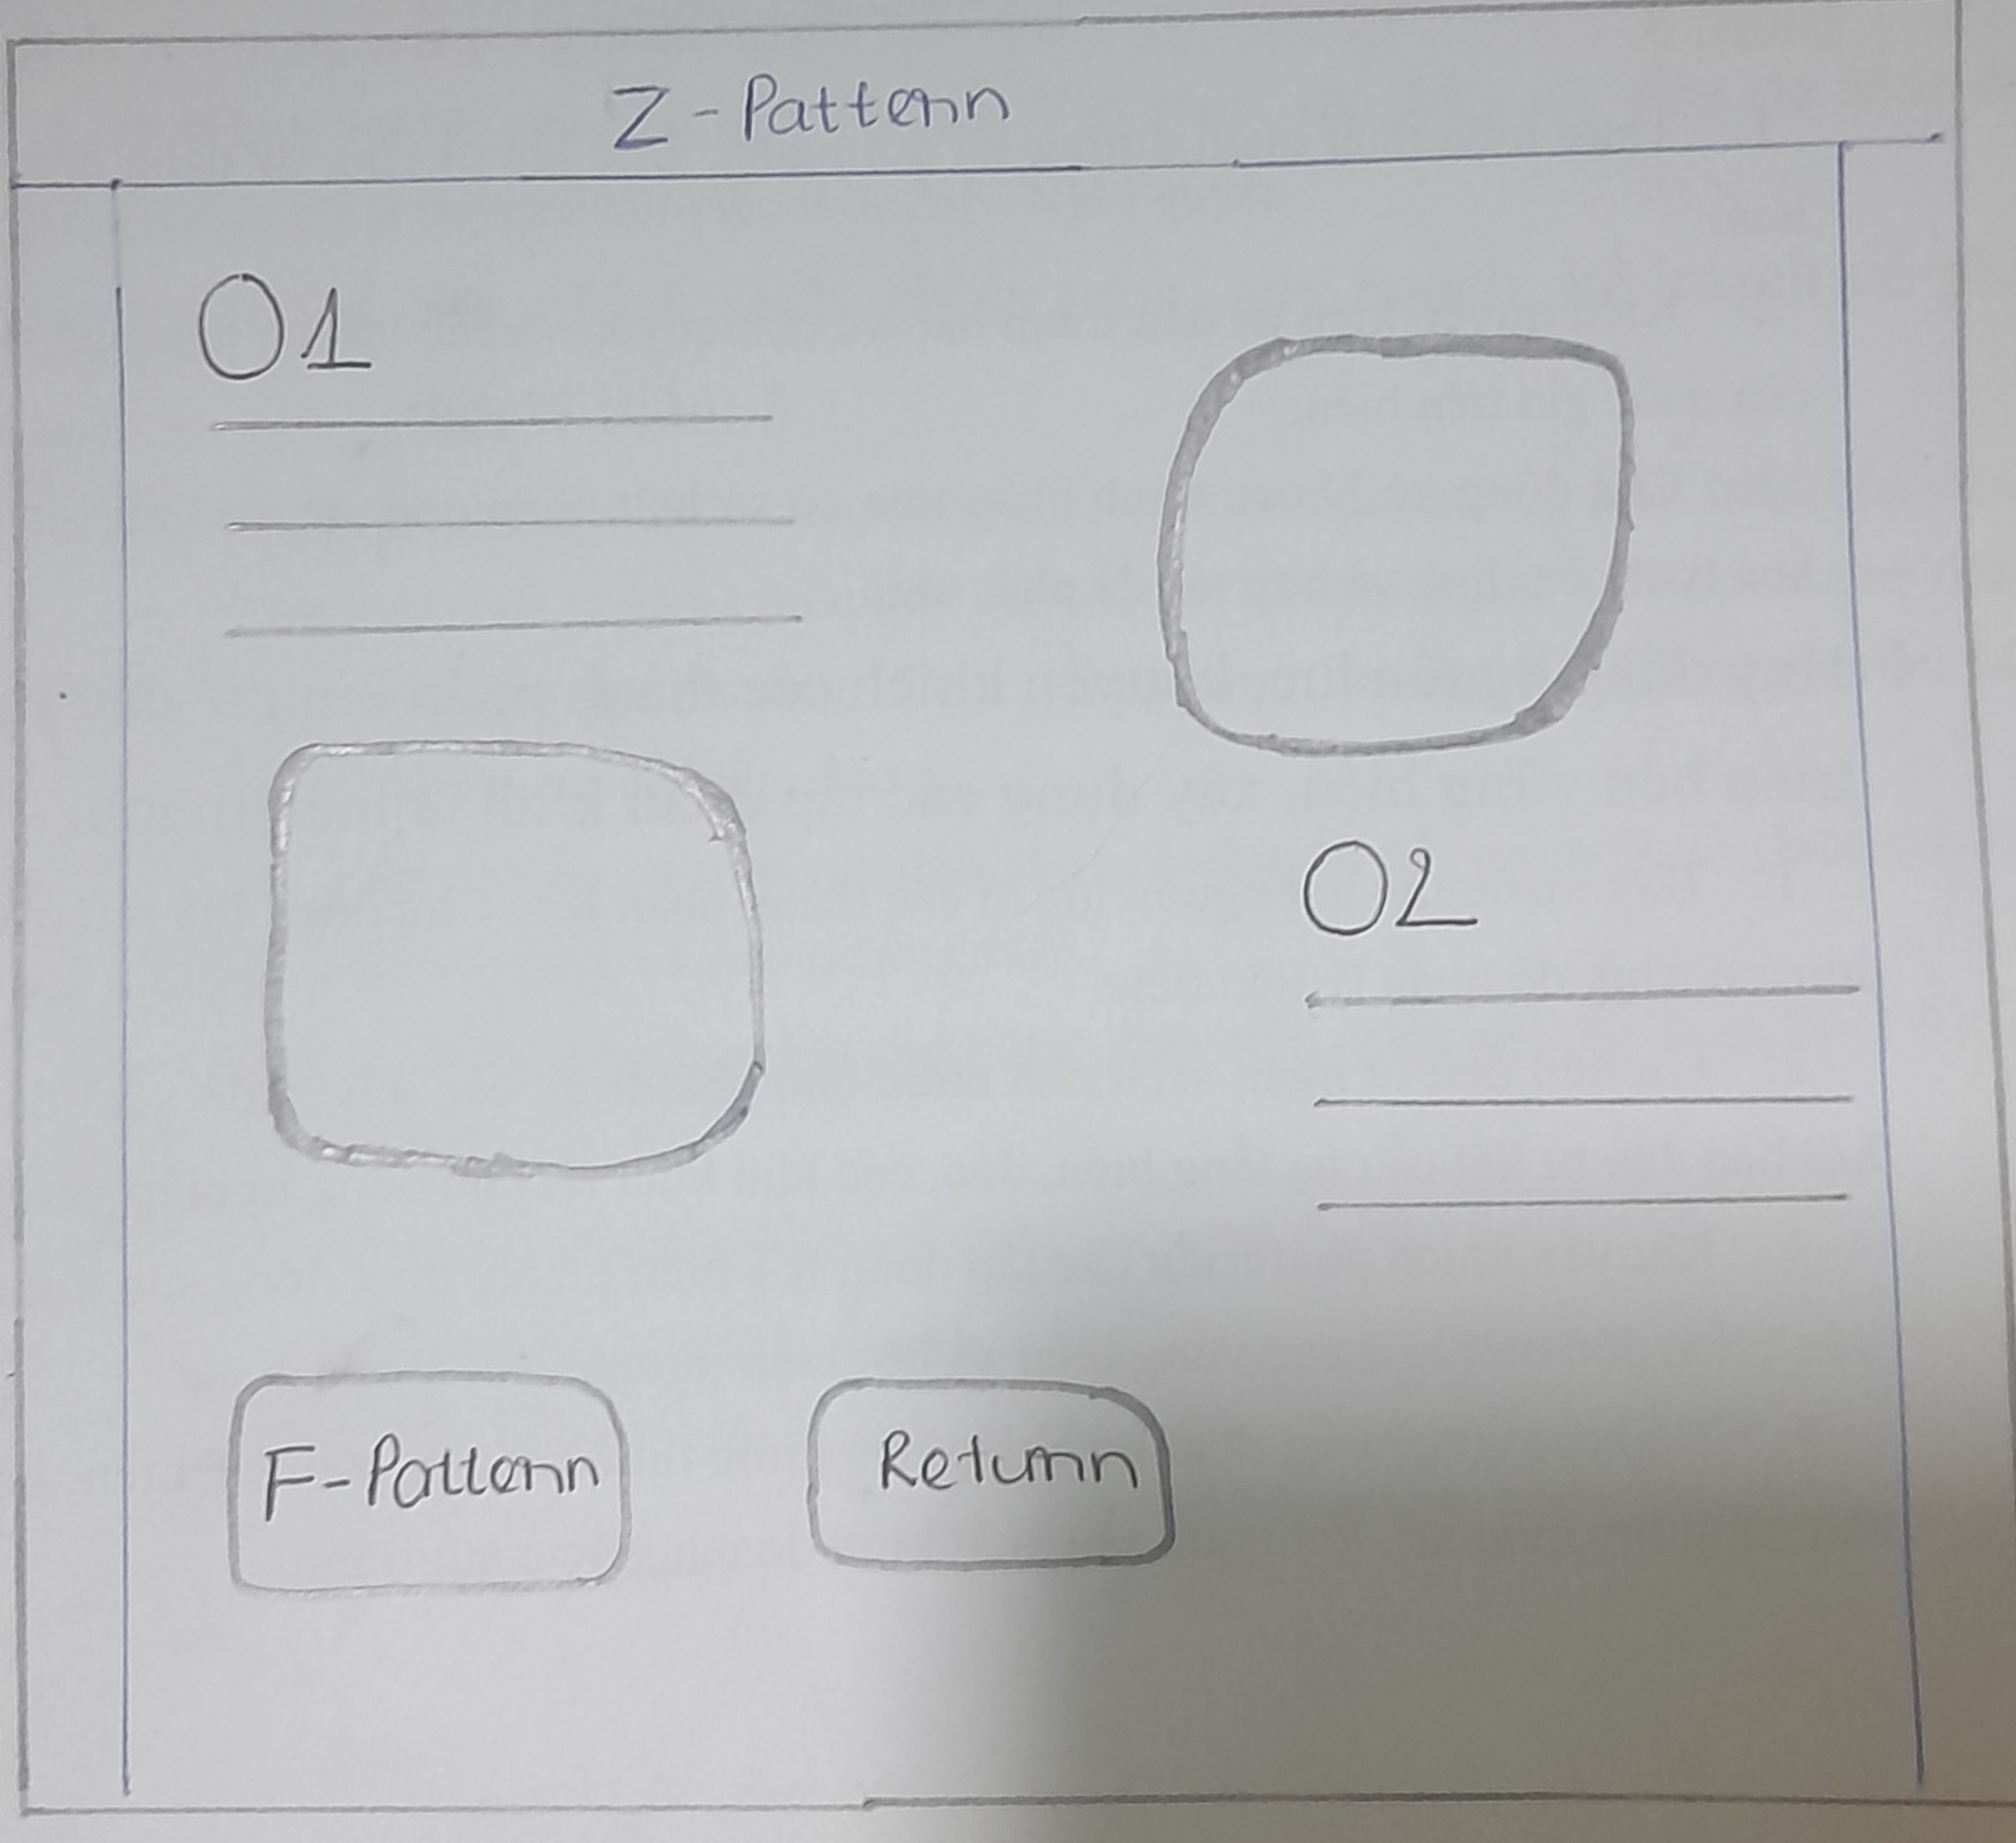 Z-Pattern
01
02
F-Pattern
Return